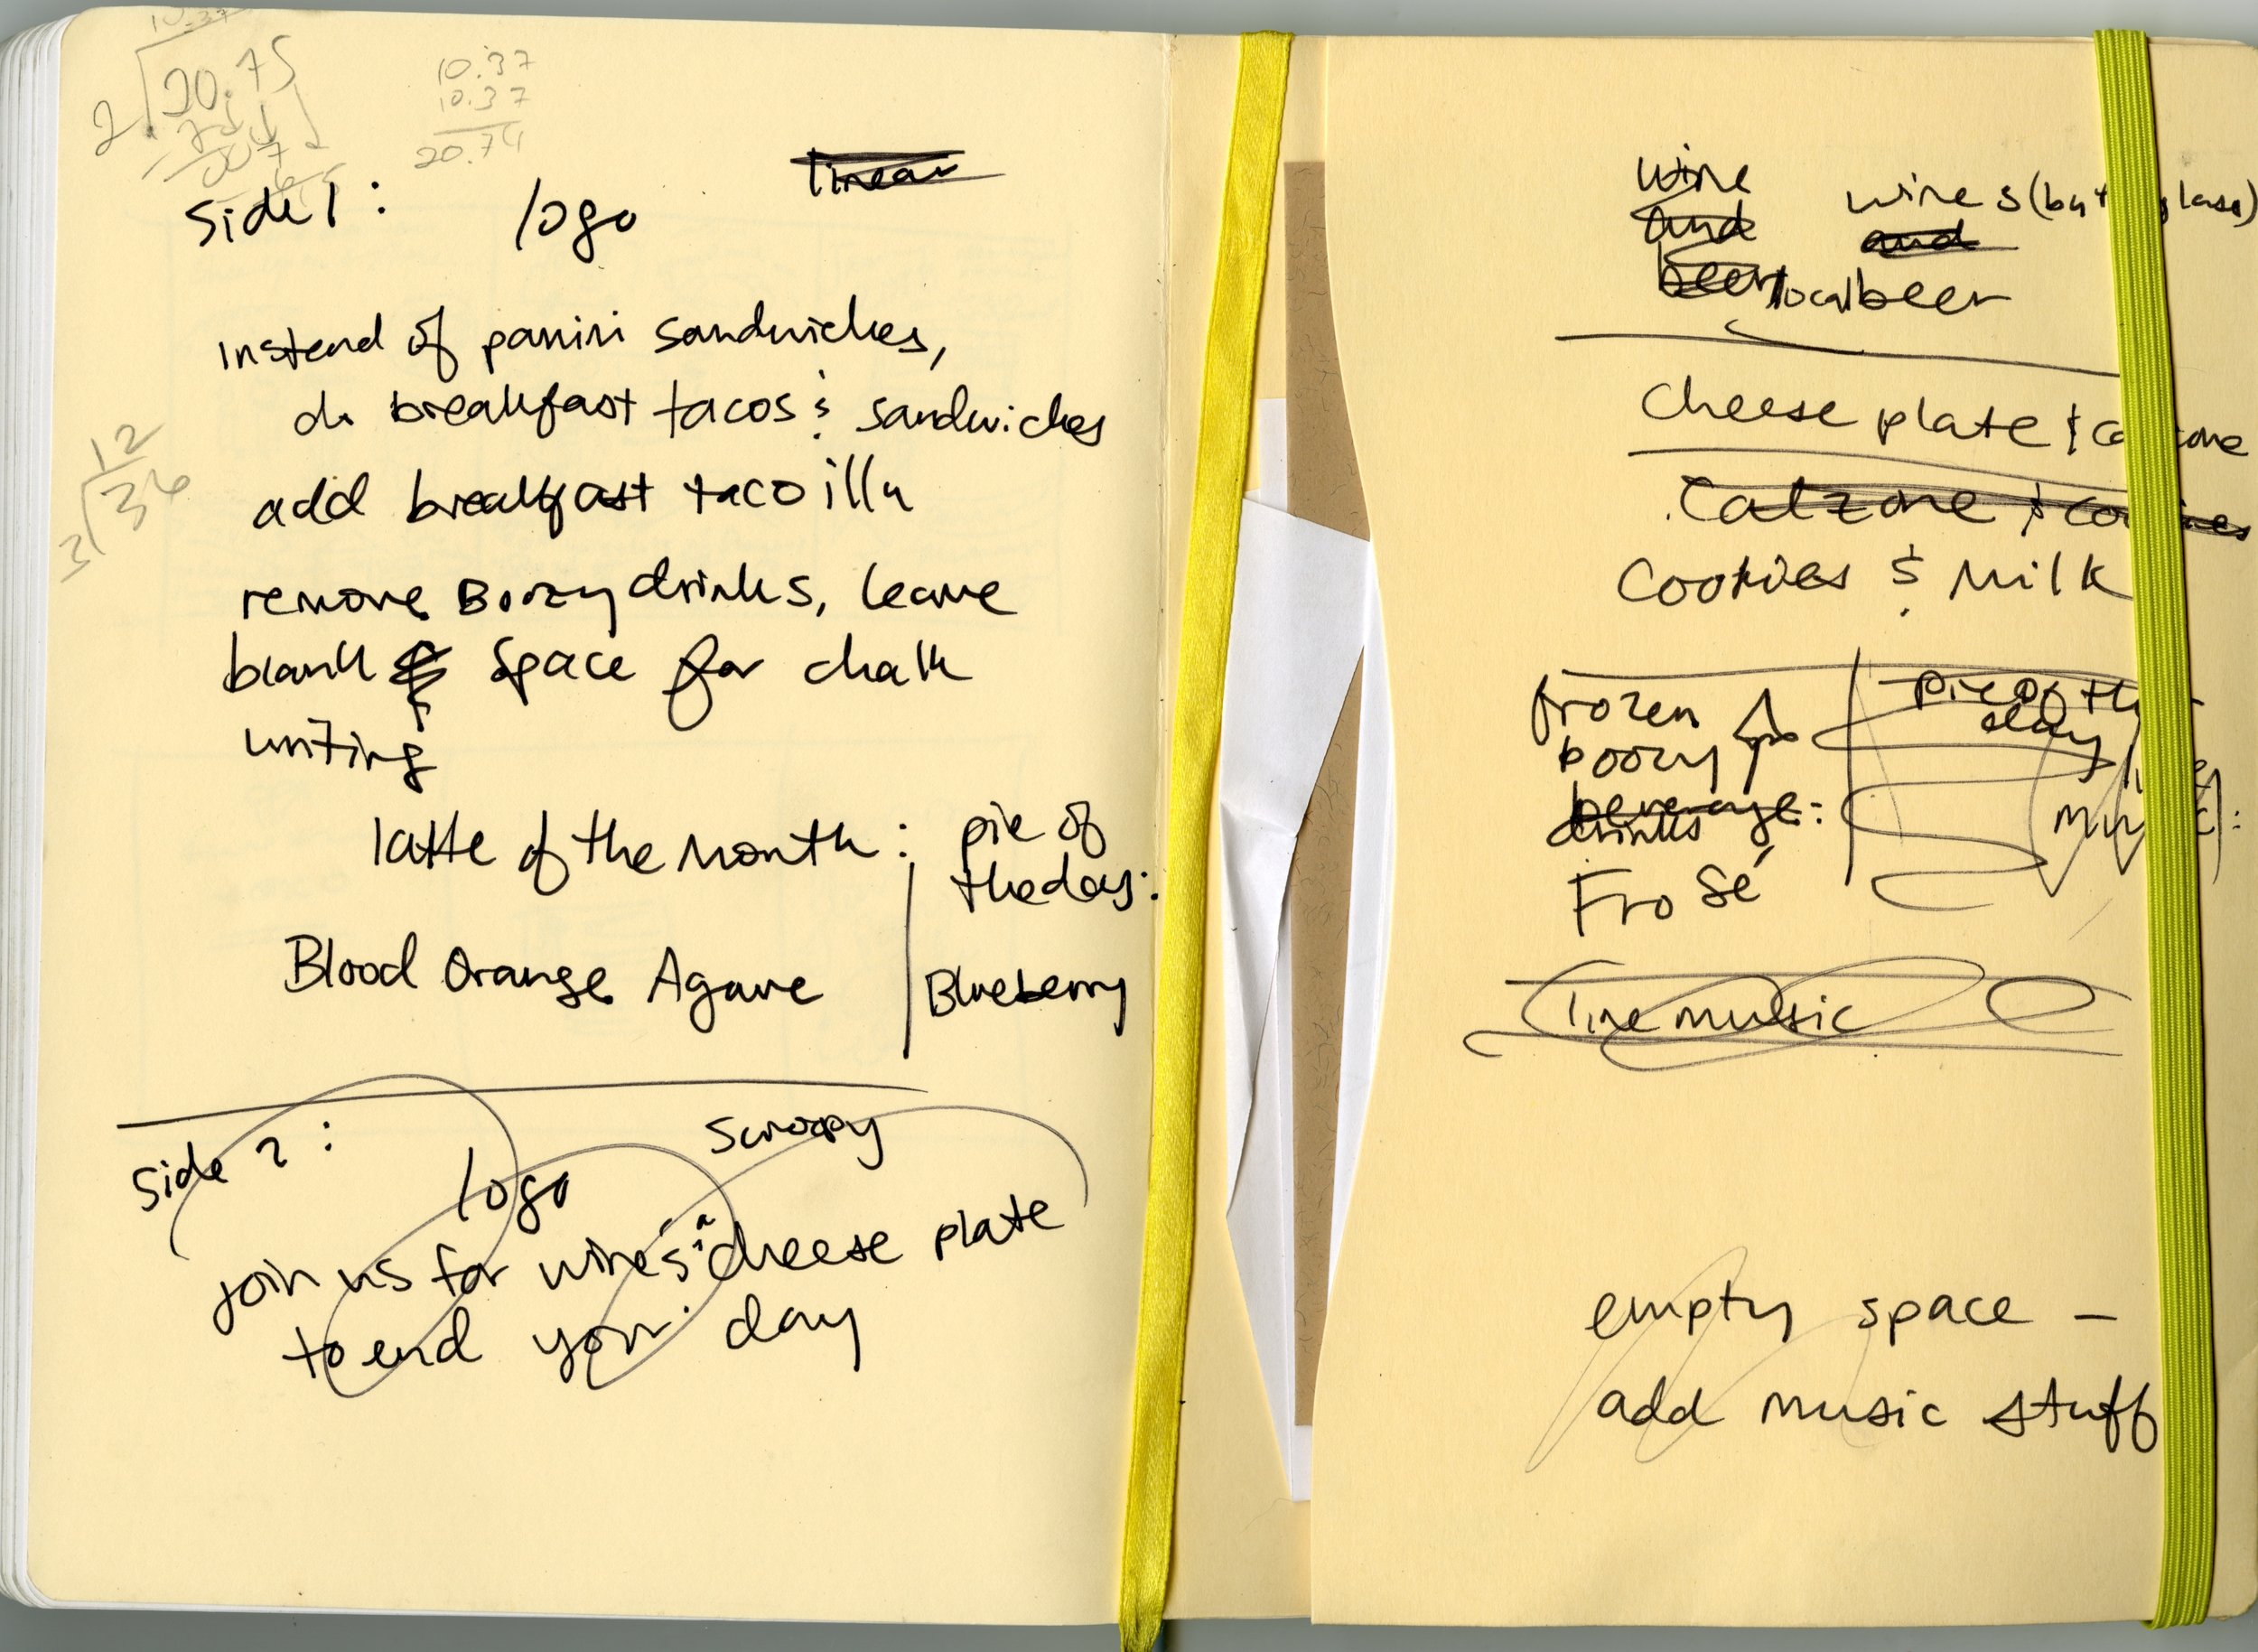 10.37
2 20.75
10.37
10.37
20.74
12
3 36
side 1: logo linear
instead of panini sandwiches,
do breakfast tacos & sandwiches
add breakfast taco illu
remove Boozy drinks, leave
blank space for chalk
writing
latte of the month:
Blood Orange Agave
pie of
the day:
Blueberry
side 2:
logo scroopy
join us for wine & cheese plate
to end your day
wine
and
beer
wines (by glass)
and
local beer
cheese plate &
Calzone &
Cookies & Milk
frozen
boozy
beverage:
drinks
Frosé
pie of the
day
live music
empty space –
add music stuff